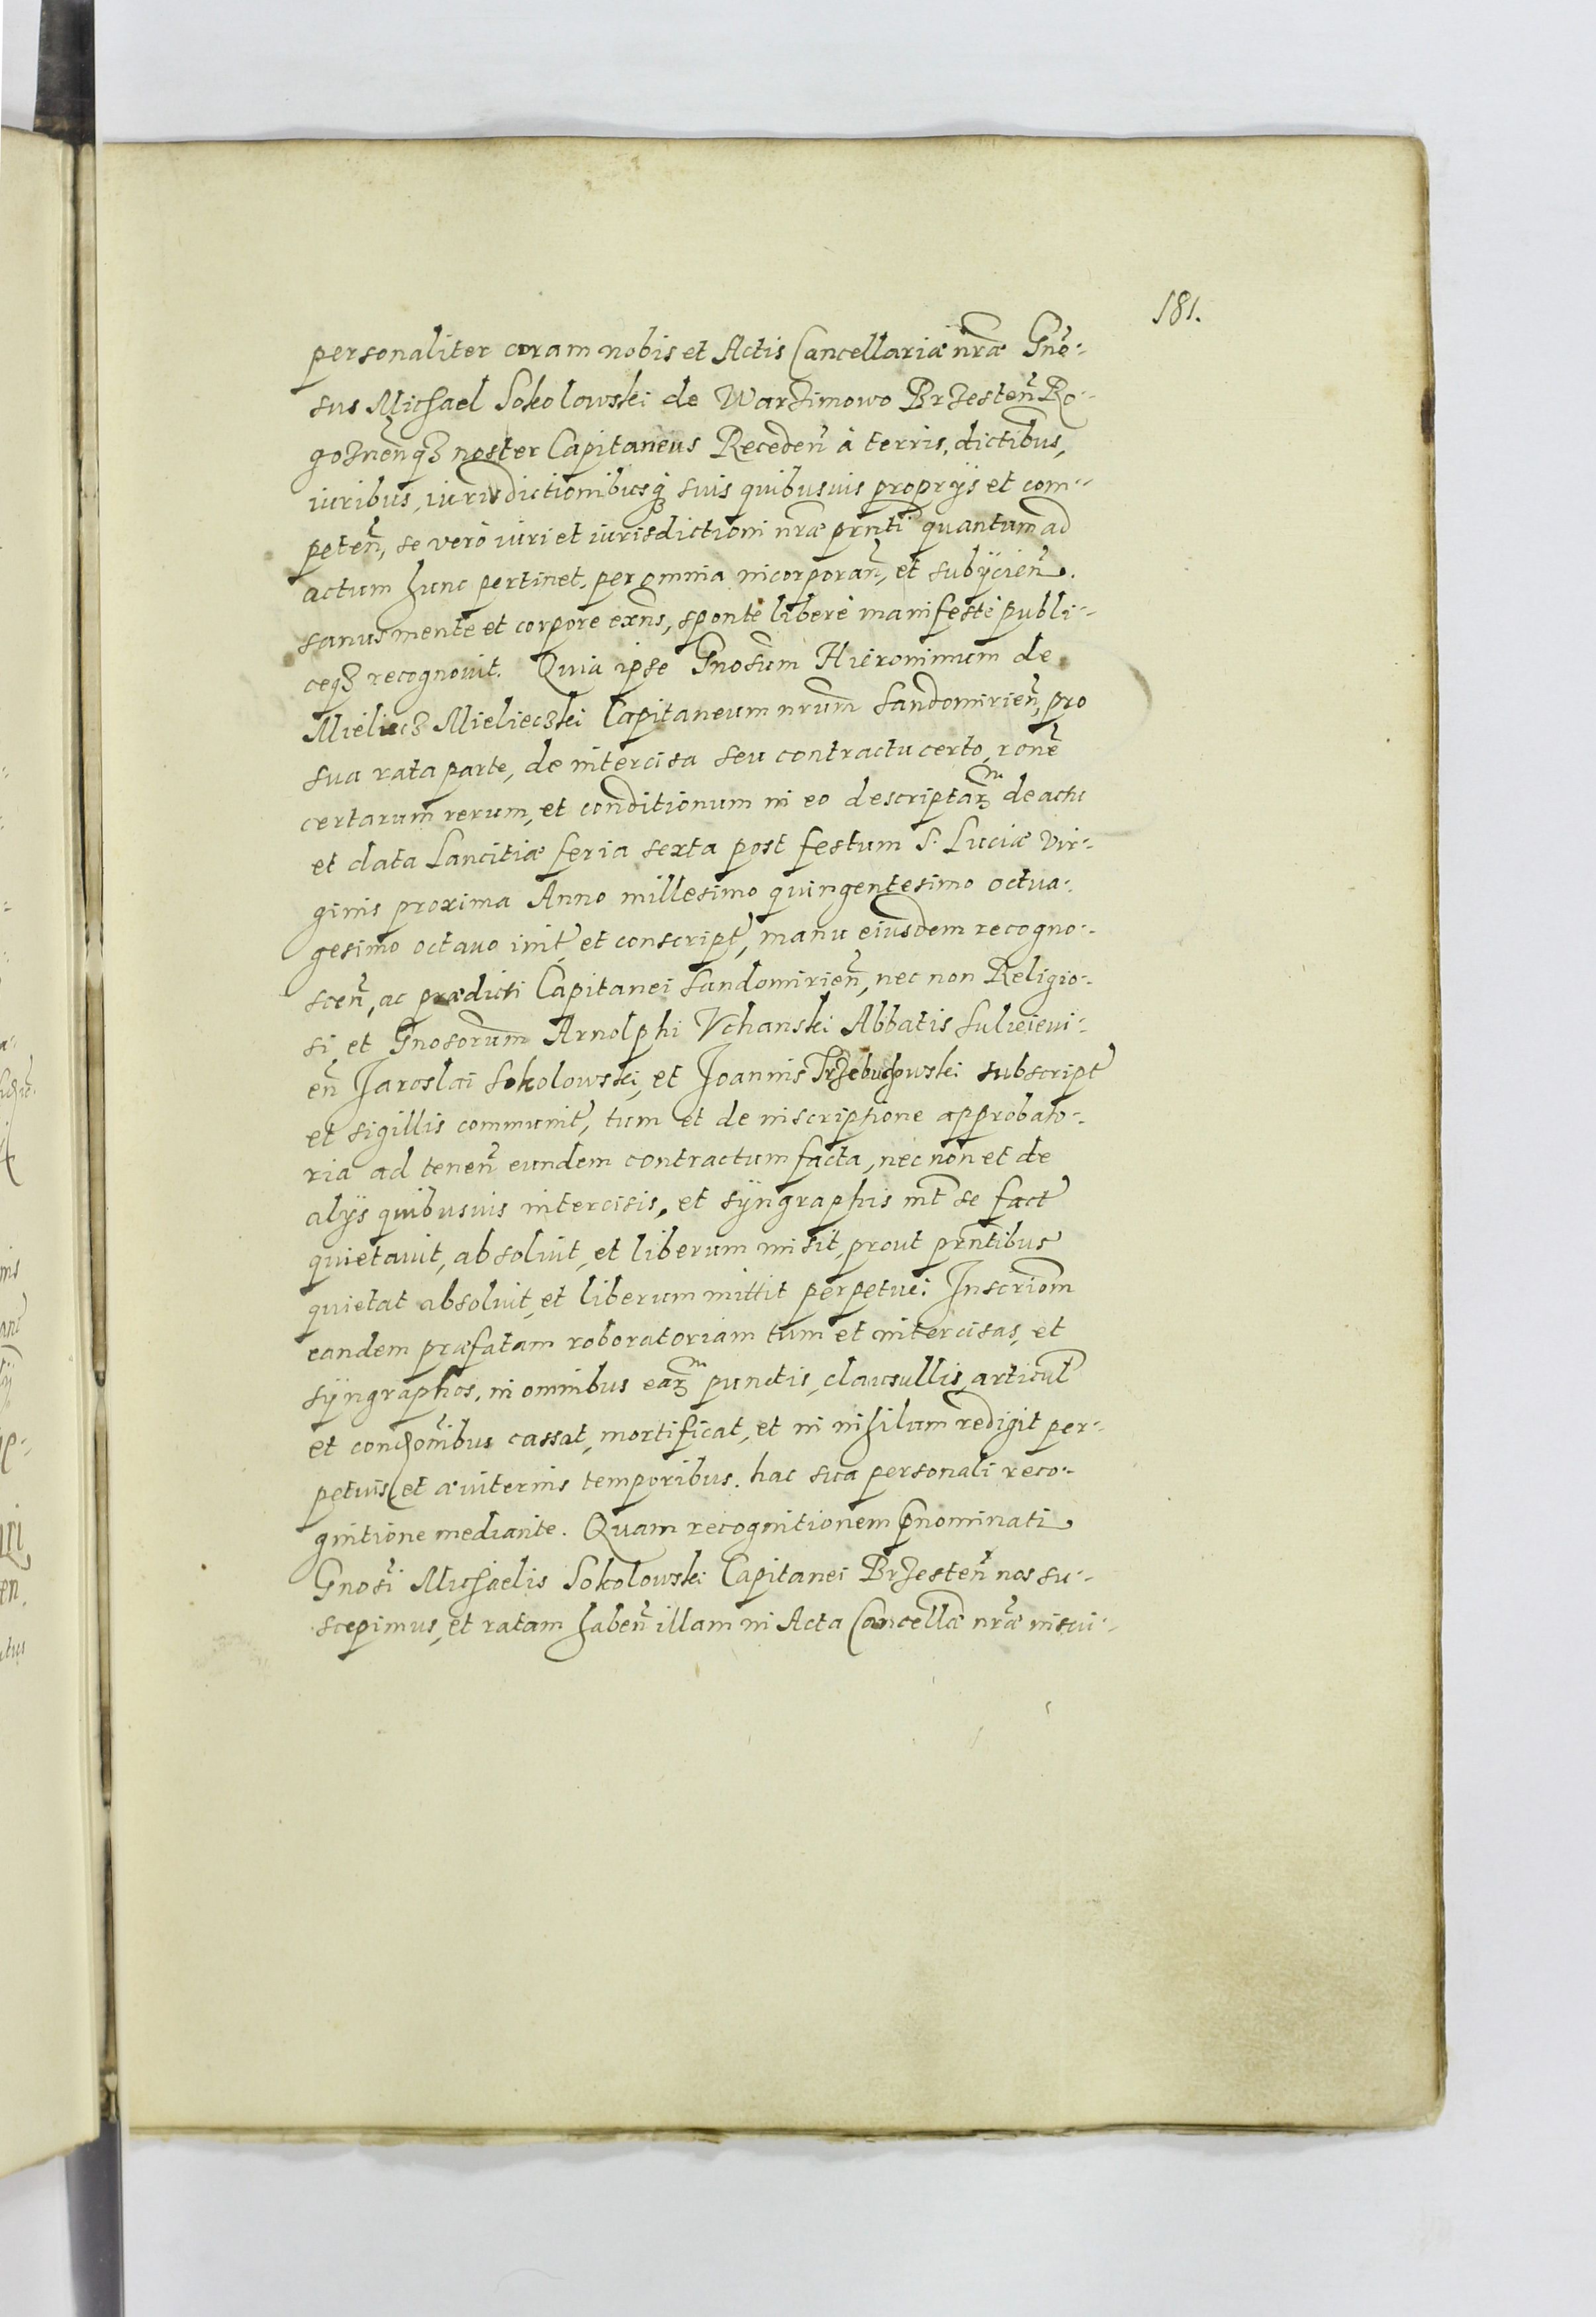 181.
personaliter coram nobis et Actis Cancellariæ nr̃æ Gnẽ-
sus Michael Sokolowski de Warzimowo Brzesteñ Ro-
goznenq̃ȝ noster Capitaneus Recedeñ à terris, dictibus,
iuribus, iurisdictionibusq̃ suis quibusuis proprÿs et com-
peteñ, se verò iuri et iurisdictioni nr̃æ prñti quantum ad
actum hunc pertinet, per omnia incorporañ, et subÿcieñ.
sanus mente et corpore exñs, sponte liberè manifestè publi-
ceqȝ recognouit. Quia ipse Gnosum Hieronimum de
Mieliecz Mielieczki Capitaneum nrum Sandomirieñ, pro
sua rata parte, de intercisa seu contractu certo, ronẽ
certarum rerum, et conditionum in eo descriptarȝ de actu
et data Lancitiæ feria sexta post festum S. Luciæ Vir-
ginis proxima Anno millesimo quingentesimo octua-
gesimo octauo init̃ et conscript̃, manu eiusdem recogno-
sceñ, ac prædicti Capitanei Sandomirieñ, nec non Religio-
si et Gnosorum Arnolphi Vchanski Abbatis Sulieieui-
eñ Jaroslai Sokolowski, et Joannis Trzebuchowski subscript̃
et sigillis communit̃, tum et de inscriptione approbato-
ria ad teneñ eundem contractum facta, nec non et de
alÿs quibusuis intercisis, et sÿngraphis int̃ se fact̃
quietauit, absoluit, et liberum misit, prout prñtibus
quietat absoluit, et liberum mittit perpetuè: Inscriom̃
eandem præfatam roboratoriam tum et intercisas, et
sÿngraphos, in omnibus earȝ punctis, clausullis, articul̃
et condõnibus cassat, mortificat, et in nihilum redigit per-
petuis et æuiternis temporibus. hac sua personali reco-
gnitione mediante. Quam recognitionem p̃nominati
Gnosi Michaelis Sokolowski Capitanei Brzesteñ nos su-
scepimus, et ratam habeñ illam in Acta Cancellæ nr̃æ inscri-